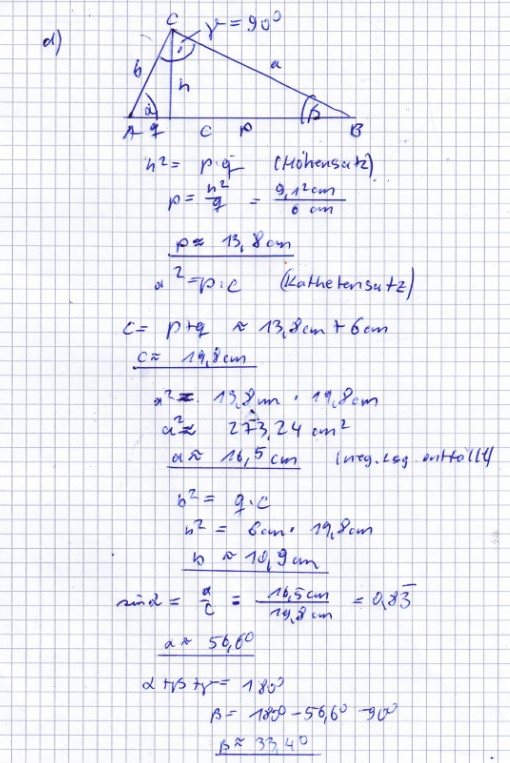 d)
C γ = 90°
b a
α h β
A q C p B
h² = p·q (Höhensatz)
p = h²/q = 9,1² cm / 6 cm
p ≈ 13,8 cm
a² = p·c (Kathetensatz)
c = p+q ≈ 13,8 cm + 6 cm
c ≈ 19,8 cm
a² ≈ 13,8 cm · 19,8 cm
a² ≈ 273,24 cm²
a ≈ 16,5 cm (neg. Lsg. entfällt)
b² = q·c
b² = 6 cm · 19,8 cm
b ≈ 10,9 cm
sin α = a/c = 16,5 cm / 19,8 cm = 0,83̅
α ≈ 56,6°
α+β+γ = 180°
β = 180° - 56,6° - 90°
β ≈ 33,4°